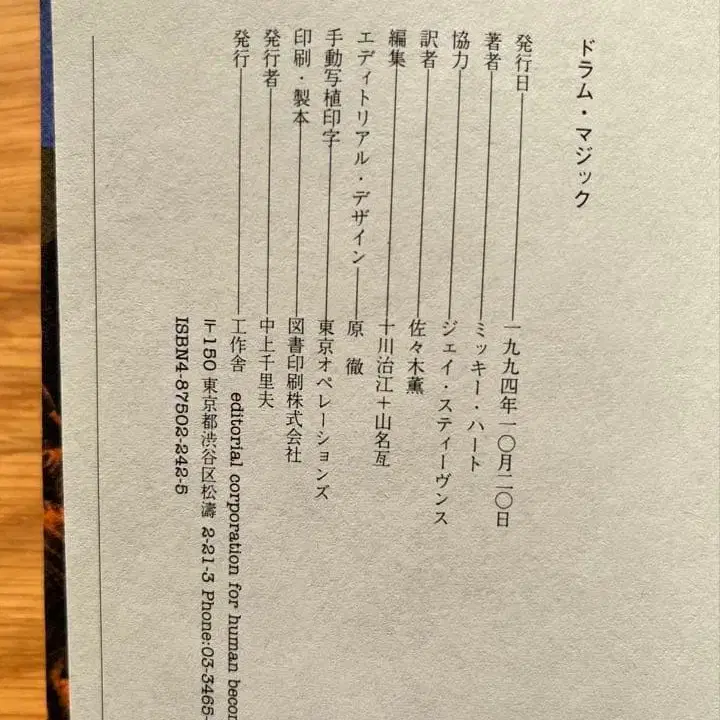 ドラム・マジック
発行日――一九九四年一〇月二〇日
著者――ミッキー・ハート
協力――ジェイ・スティーヴンス
訳者――佐々木薫
編集――十川治江+山名亙
エディトリアル・デザイン――原 徹
手動写植印字――東京オペレーションズ
印刷・製本――図書印刷株式会社
発行者――中上千里夫
発行――工作舎 editorial corporation for human becom
〒150 東京都渋谷区松濤 2-21-3 Phone:03-3465-
ISBN4-87502-242-5